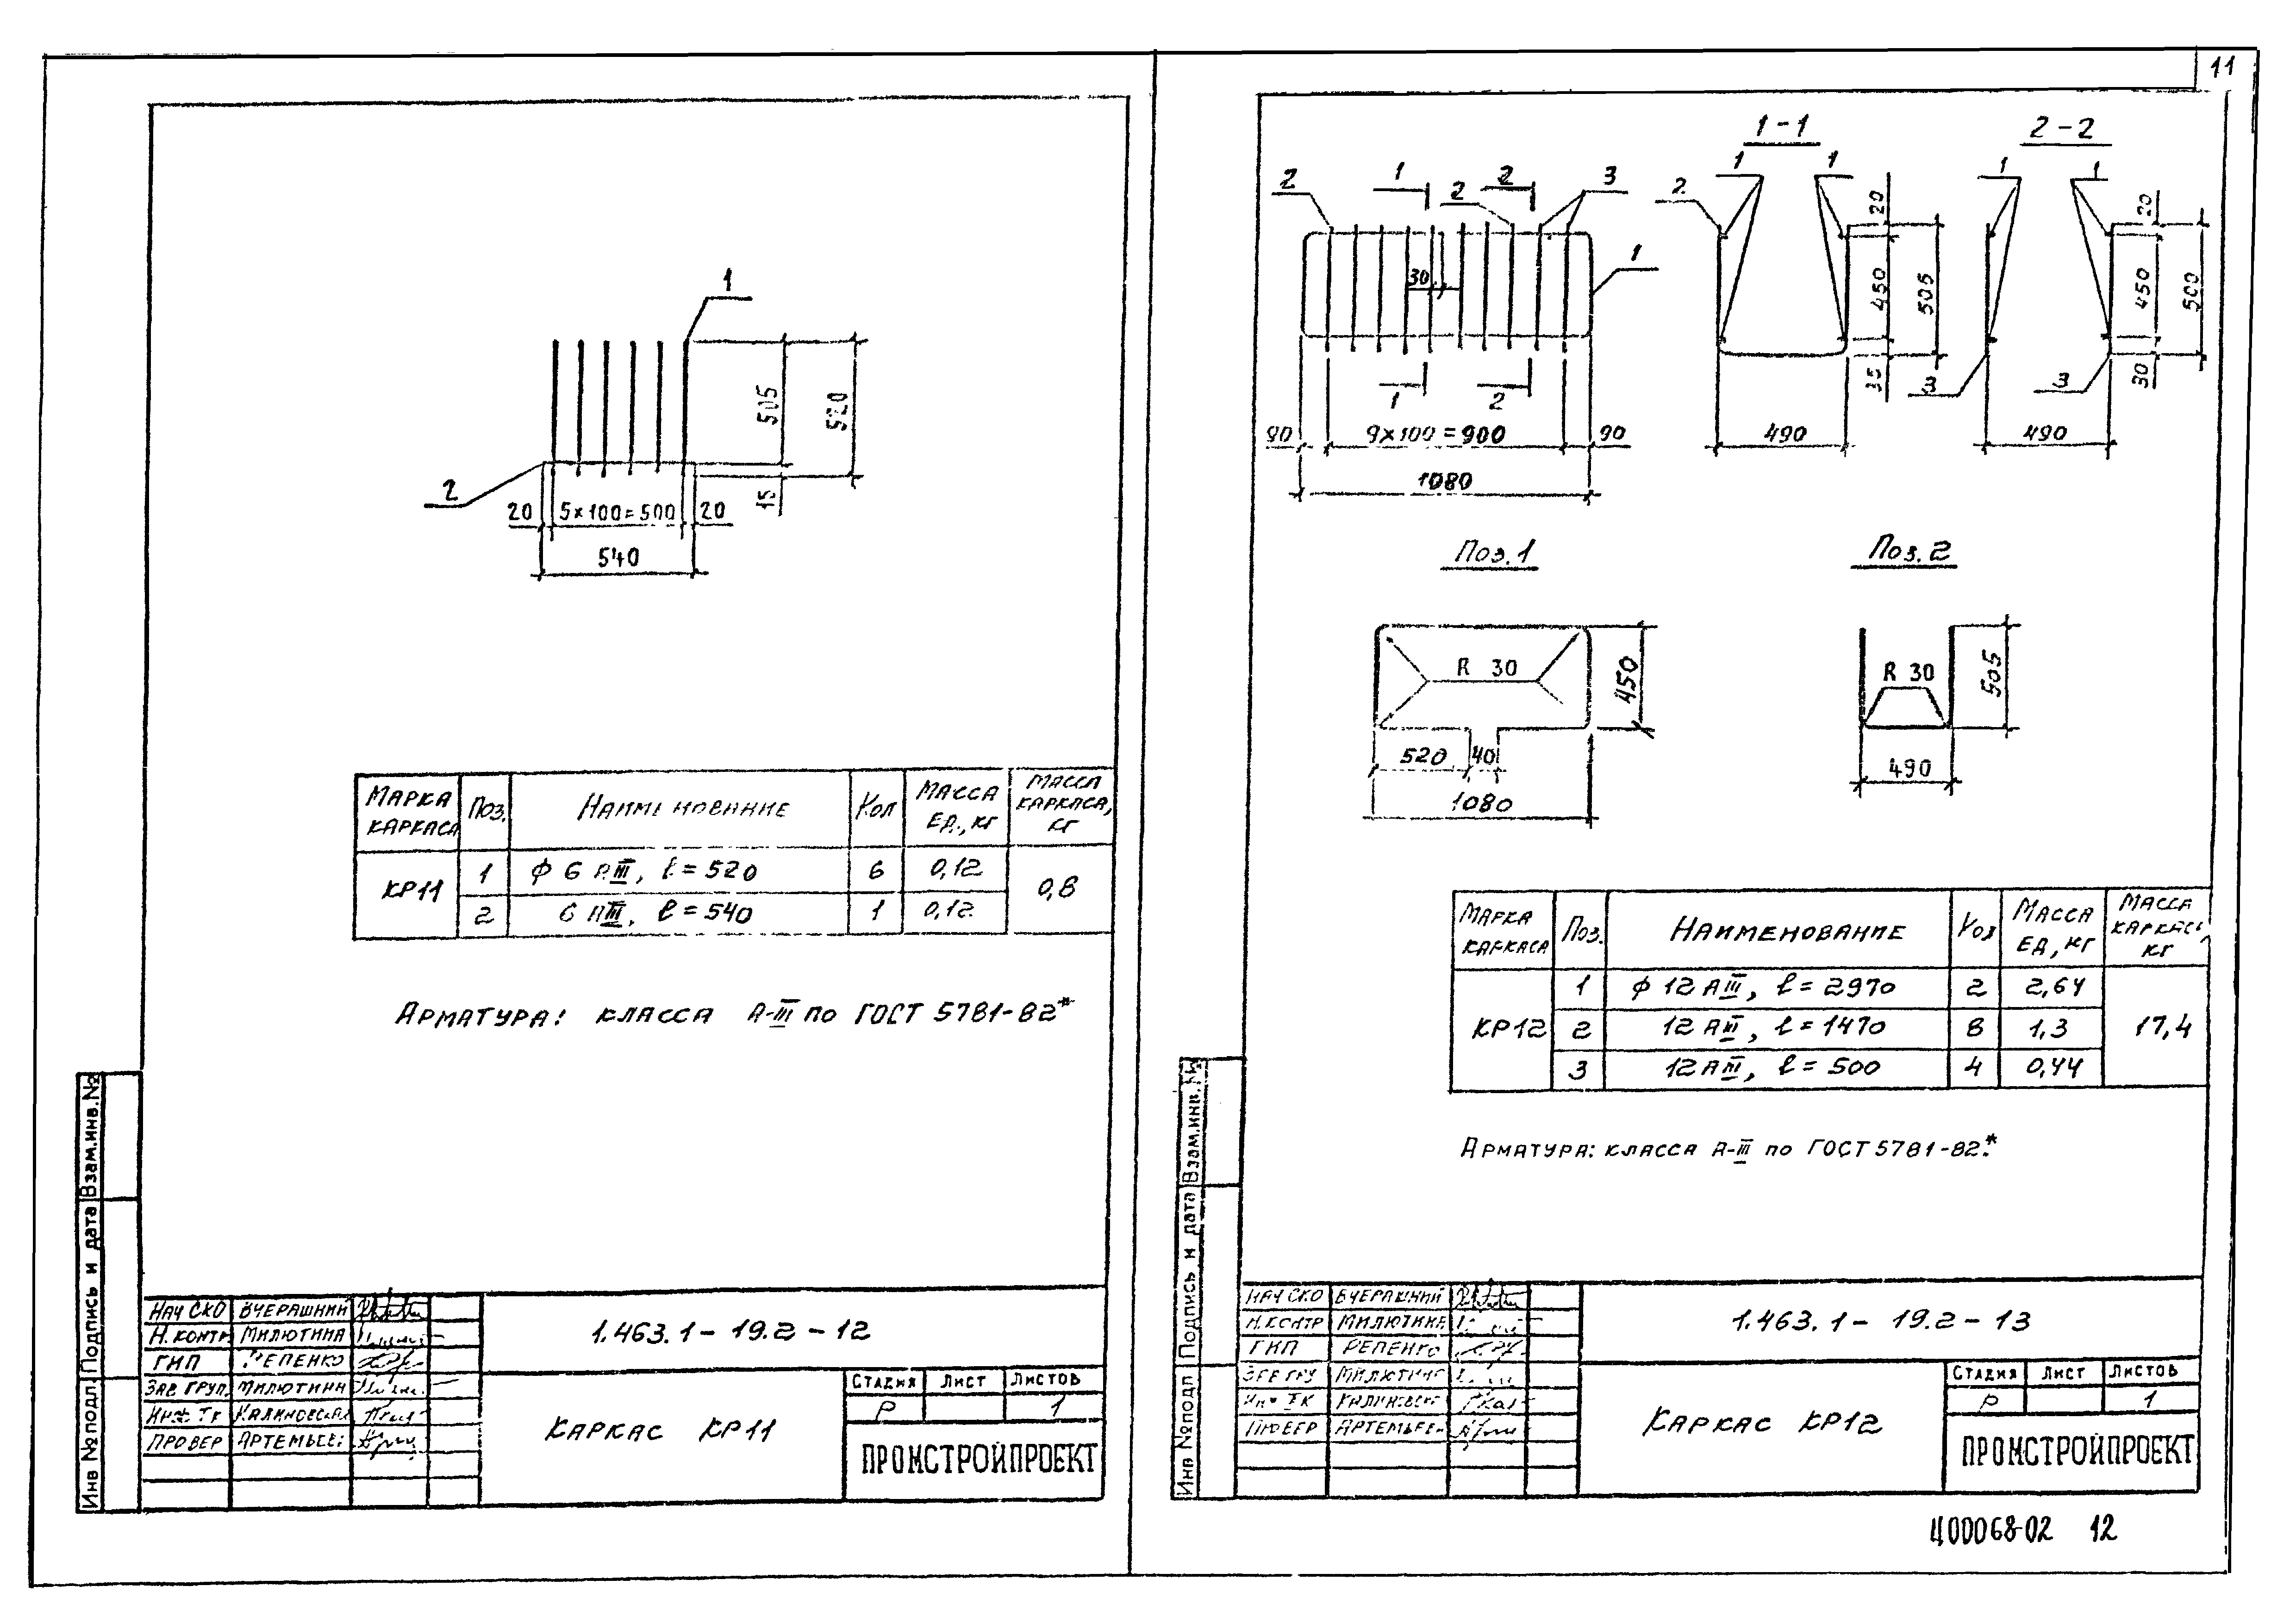 11
1
2
505
520
15
20 5×100=500 20
540
МАРКА КАРКАСА ПОЗ. НАИМЕНОВАНИЕ КОЛ МАССА ЕД., КГ МАССА КАРКАСА, КГ
КР11 1 ф 6 АIII, ℓ=520 6 0,12 0,8
2 6 АIII, ℓ=540 1 0,12
АРМАТУРА: КЛАССА А-III ПО ГОСТ 5781-82*
Инв № подл. Подпись и дата Взам.инв.№
НАЧ СКО ВЧЕРАШНИЙ
Н.КОНТР МИЛЮТИНА
ГИП РЕПЕНКО
ЗАВ ГРУП. МИЛЮТИНА
ИНЖ ТК КАЛИНОВСКАЯ
ПРОВЕР АРТЕМЬЕВ
1.463.1-19.2-12
КАРКАС КР11
СТАДИЯ ЛИСТ ЛИСТОВ
Р 1
ПРОМСТРОЙПРОЕКТ
1-1 2-2
2 1 2 2 3
1 1 2
1 1
30
1
1 2
90 9×100=900 90
1080
20 450 35 505
490
20 450 30 500
3 3
490
Поз.1 Поз.2
R 30
450
520 40
1080
R 30
505
490
МАРКА КАРКАСА ПОЗ. НАИМЕНОВАНИЕ КОЛ МАССА ЕД, КГ МАССА КАРКАСА, КГ
КР12 1 ф 12 АIII, ℓ=2970 2 2,64 17,4
2 12 АIII, ℓ=1470 8 1,3
3 12 АIII, ℓ=500 4 0,44
АРМАТУРА: КЛАССА А-III ПО ГОСТ 5781-82*.
Инв № подл Подпись и дата Взам.инв.№
НАЧ СКО ВЧЕРАШНИЙ
Н.КОНТР МИЛЮТИНА
ГИП РЕПЕНКО
ЗАВ ГРУ МИЛЮТИНА
ИНЖ ТК КАЛИНОВСК
ПРОВЕР АРТЕМЬЕВ
1.463.1-19.2-13
КАРКАС КР12
СТАДИЯ ЛИСТ ЛИСТОВ
Р 1
ПРОМСТРОЙПРОЕКТ
Ц00068-02 12